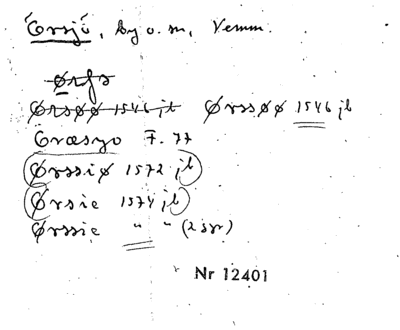 Örsjö, by o. m, Vemm.
Ørsø
Ørsøø 1546 jb Ørssøø 1546 jb
Oræsyo F. 77
(Ørssiø 1572 jb)
(Ørsie 1574 jb)
Ørssie " " (2 syr)
Nr 12401